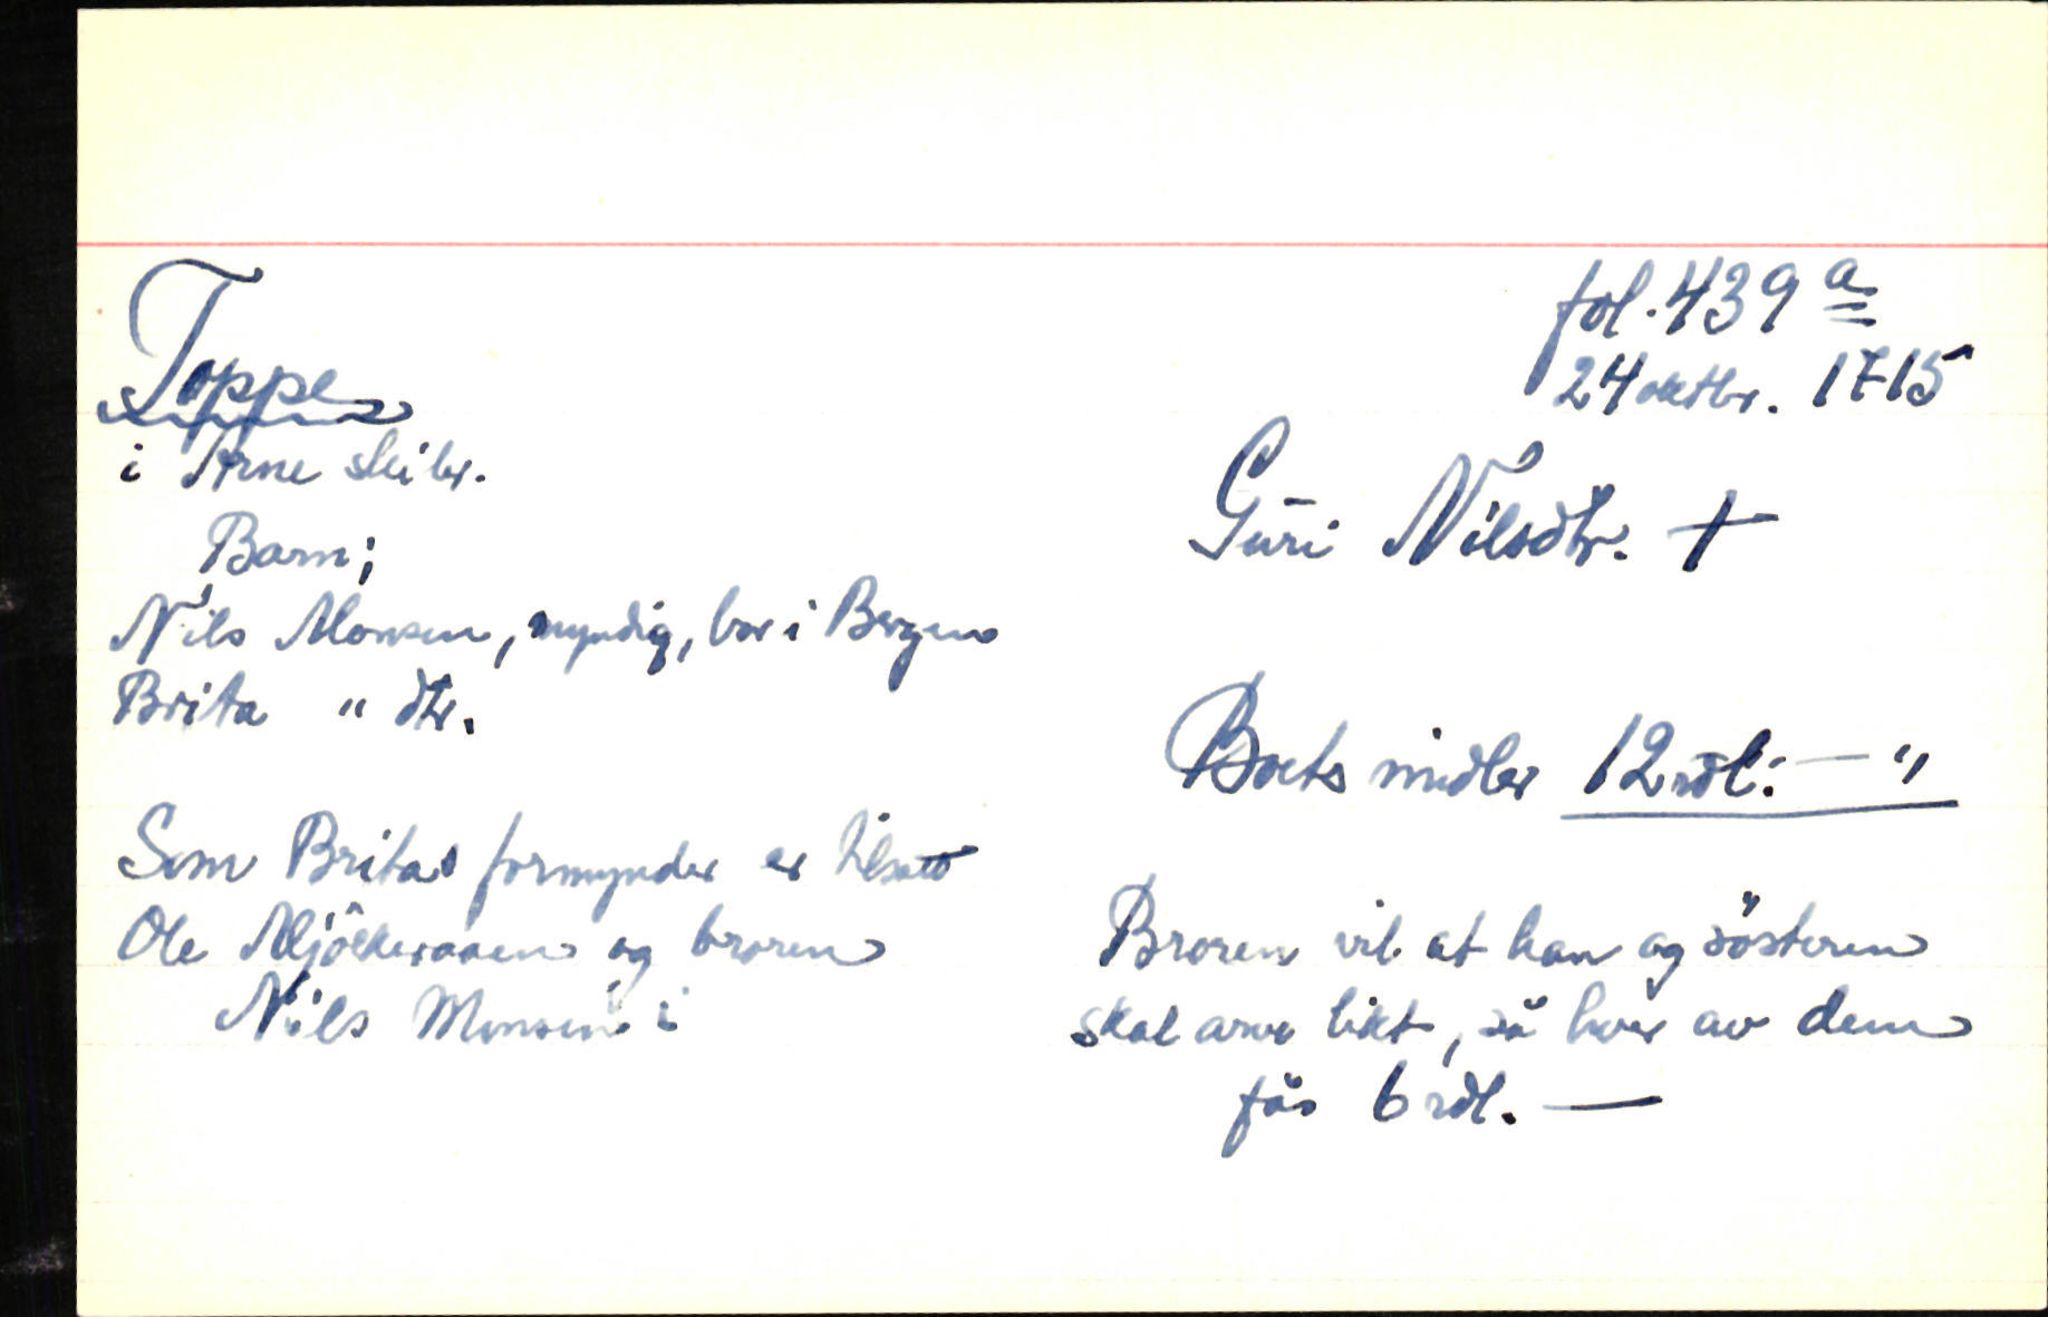 Toppe
i Arne skibr.
Barn;
Nils Monsen, myndig, bor i Bergen
Brita " dtr.
Som Britas formynder er tilsatt
Ole Mjölkeraaen og broren
Nils Monsen i
fol. 439 a
24 oktbr. 1715
Guri Nilsdtr. +
Boets midler 12 rdl: — "
Broren vil at han og sösteren
skal arve likt, så hver av dem
fås 6 rdl. —